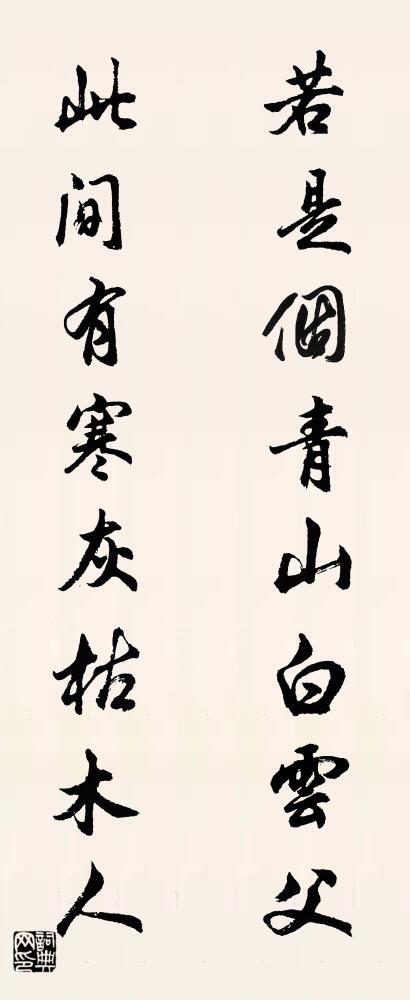 若是個青山白雲父
此间有寒灰枯木人
詞典网印